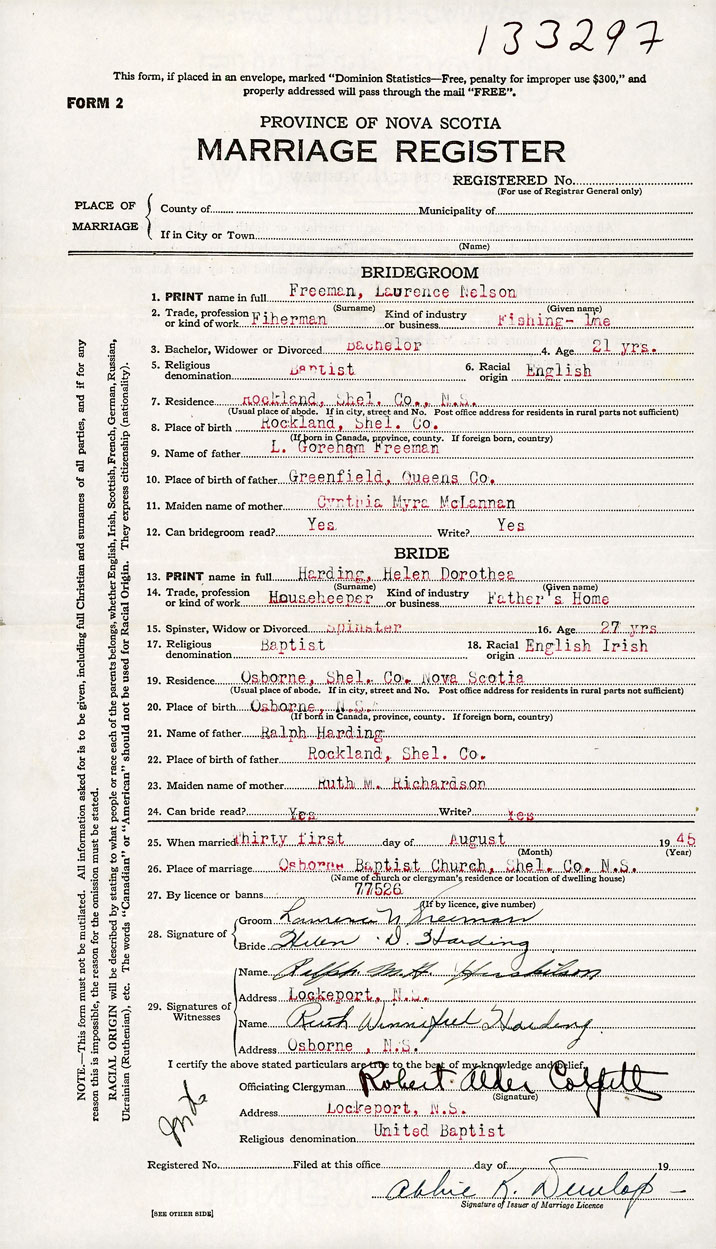 133297
This form, if placed in an envelope, marked "Dominion Statistics—Free, penalty for improper use $300," and
properly addressed will pass through the mail "FREE".
FORM 2
PROVINCE OF NOVA SCOTIA
MARRIAGE REGISTER
REGISTERED No.
(For use of Registrar General only)
PLACE OF MARRIAGE
County of Municipality of
If in City or Town
(Name)
BRIDEGROOM
1. PRINT name in full Freeman, Laurence Nelson
(Surname) (Given name)
2. Trade, profession or kind of work Fiherman Kind of industry or business Fishing- Ine
3. Bachelor, Widower or Divorced Bachelor 4. Age 21 yrs.
5. Religious denomination Baptist 6. Racial origin English
7. Residence Rockland, Shel. Co., N.S.
(Usual place of abode. If in city, street and No. Post office address for residents in rural parts not sufficient)
8. Place of birth Rockland, Shel. Co.
(If born in Canada, province, county. If foreign born, country)
9. Name of father L. Goreham Freeman
10. Place of birth of father Greenfield, Queens Co.
11. Maiden name of mother Cynthia Myra McLannan
12. Can bridegroom read? Yes Write? Yes
BRIDE
13. PRINT name in full Harding, Helen Dorothea
(Surname) (Given name)
14. Trade, profession or kind of work Househeeper Kind of industry or business Father's Home
15. Spinster, Widow or Divorced Spinster 16. Age 27 yrs
17. Religious denomination Baptist 18. Racial origin English Irish
19. Residence Osborne, Shel. Co. Nova Scotia
(Usual place of abode. If in city, street and No. Post office address for residents in rural parts not sufficient)
20. Place of birth Osborne, N.S.
(If born in Canada, province, county. If foreign born, country)
21. Name of father Ralph Harding
22. Place of birth of father Rockland, Shel. Co.
23. Maiden name of mother Ruth M. Richardson
24. Can bride read? Yes Write? Yes
25. When married Thirty first day of August 1945
(Month) (Year)
26. Place of marriage Osborne Baptist Church, Shel. Co. N.S.
(Name of church or clergyman's residence or location of dwelling house)
27. By licence or banns 77526
(If by licence, give number)
28. Signature of
Groom Laurence N Freeman
Bride Helen D. Harding
29. Signatures of Witnesses
Name Ralph M. H.
Address Lockeport, N.S.
Name Ruth Winnifred Harding
Address Osborne , N.S.
I certify the above stated particulars are true to the best of my knowledge and belief.
Officiating Clergyman Robert Alder
(Signature)
Address Lockeport, N.S.
Religious denomination United Baptist
Registered No. Filed at this office day of 19
Abbie K. Dunlop
Signature of Issuer of Marriage Licence
[SEE OTHER SIDE]
NOTE.—This form must not be mutilated. All information asked for is to be given, including full Christian and surnames of all parties, and if for any
reason this is impossible, the reason for the omission must be stated.
RACIAL ORIGIN will be described by stating to what people or race each of the parents belongs, whether English, Irish, Scottish, French, German, Russian,
Ukrainian (Ruthenian), etc. The words "Canadian" or "American" should not be used for Racial Origin. They express citizenship (nationality).